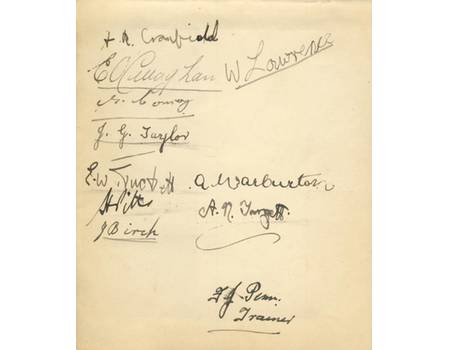 H. R. Cranfield
E C Monaghan W Lawrence
G. Conway
J. G. Taylor
E. W. Tuckett A. Warburton
H Pitts A. N. Targett
J Birch
F J Penn.
Trainer